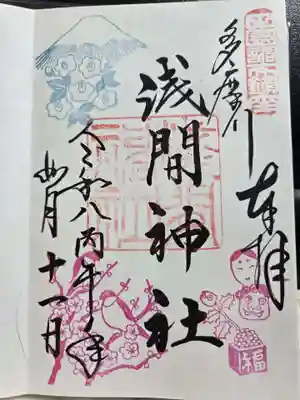 奉拝
多摩川
浅間神社
令和八丙午年
十一日
福